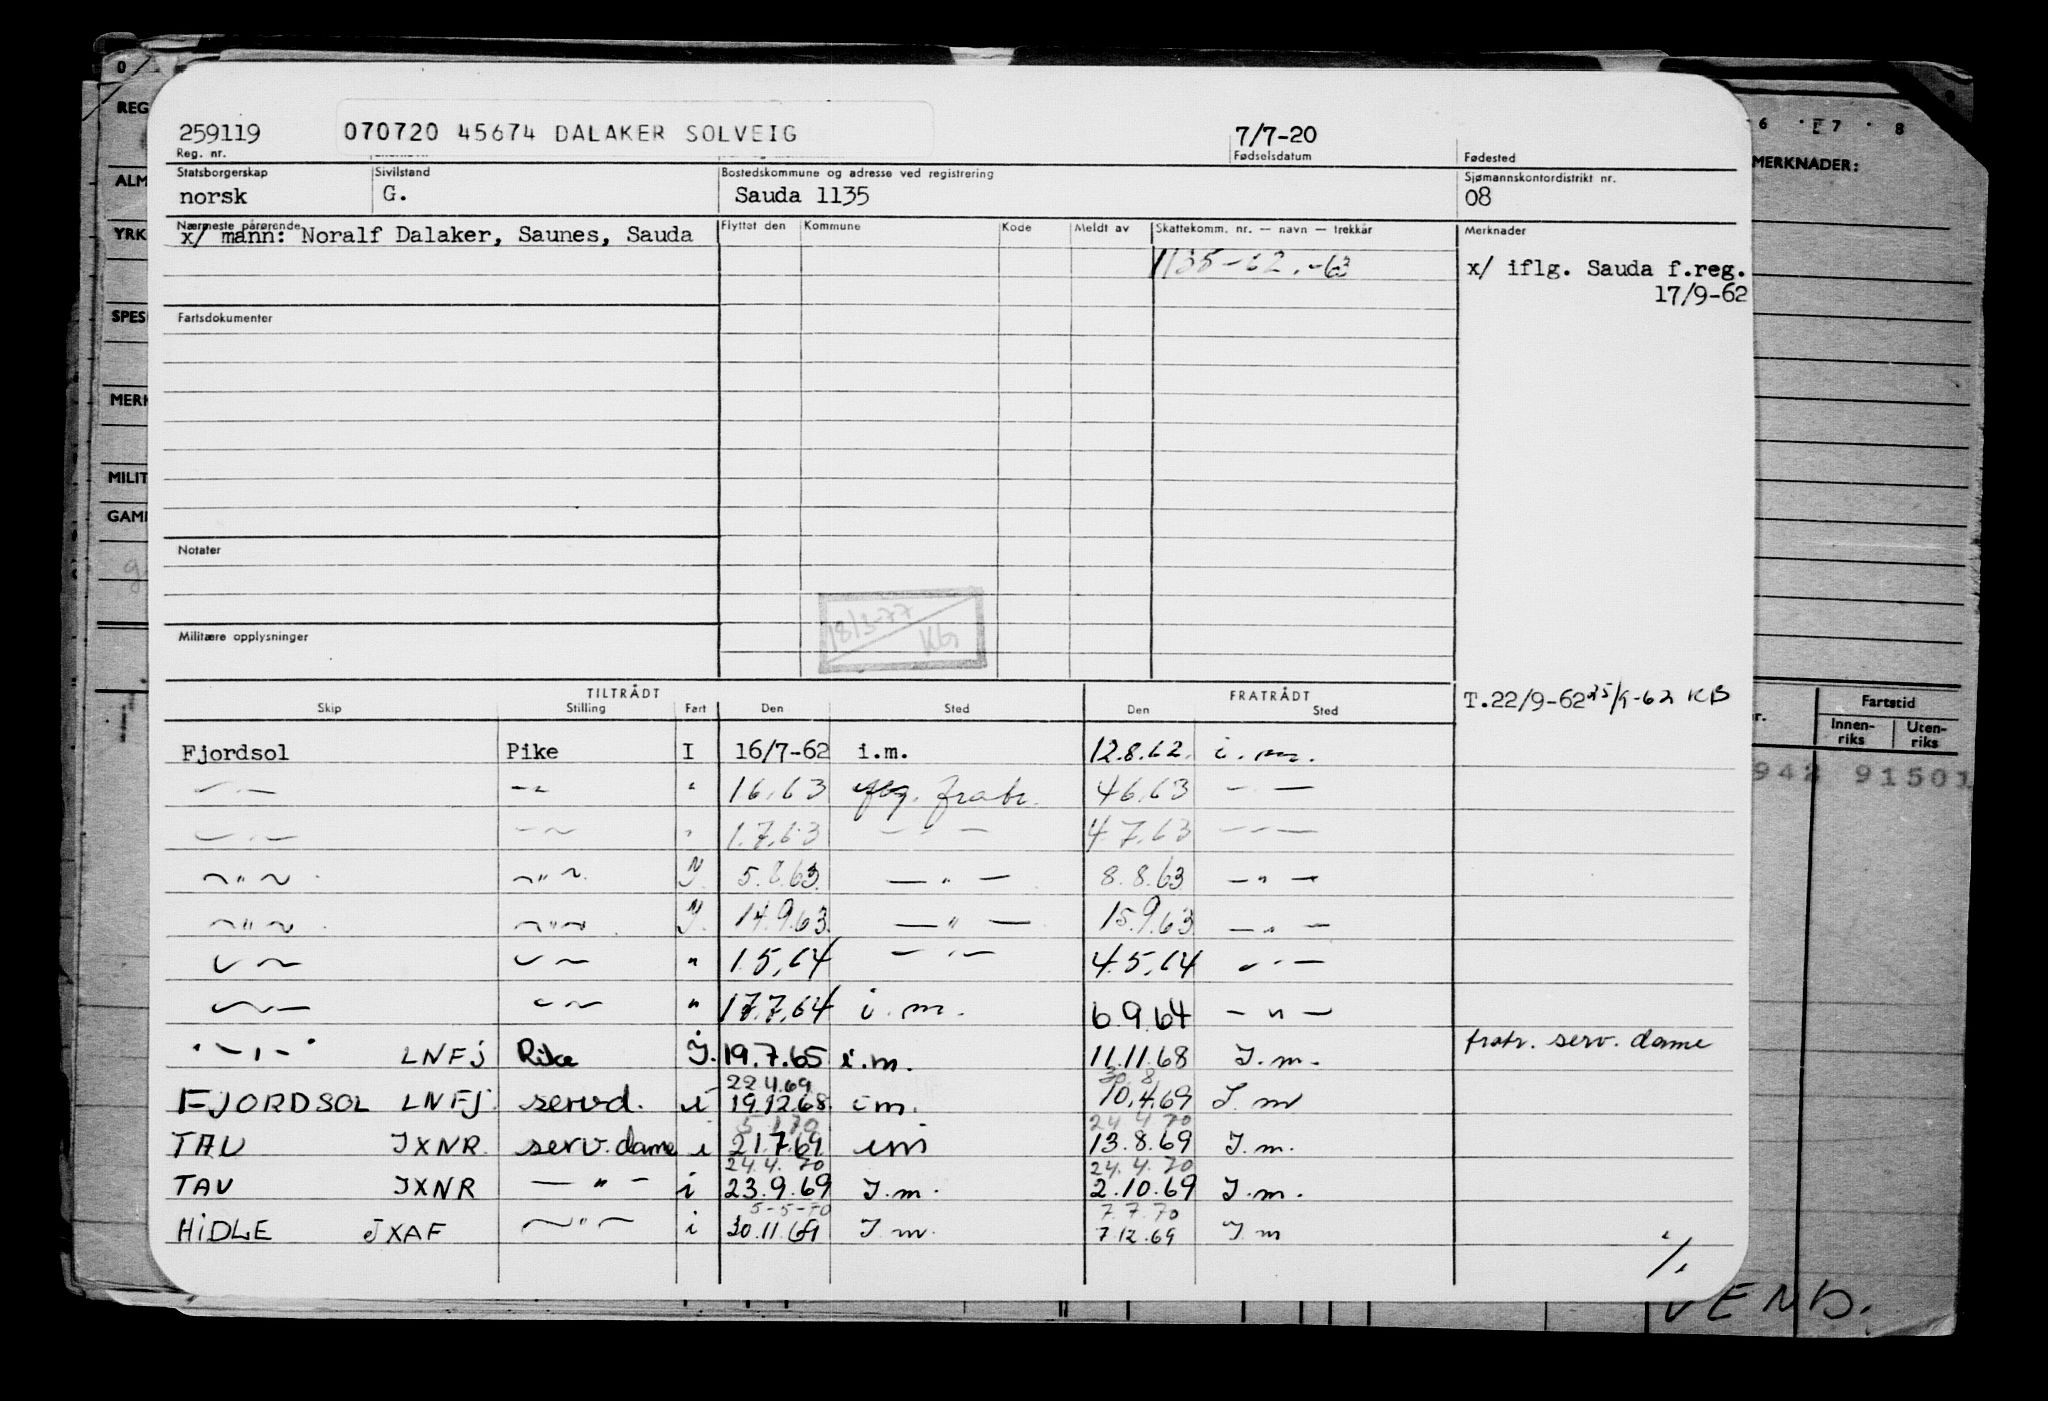 259119 070720 45674 DALAKER SOLVEIG 7/7-20
Reg. nr. Fødselsdatum Fødested
Statsborgerskap Sivilstand Bostedskommune og adresse ved registrering Sjømannskontordistrikt nr.
norsk G. Sauda 1135 08
Nærmeste pårørende Flyttet den Kommune Kode Meldt av Skattekomm. nr. — navn — trekkår Merknader
x/ mann: Noralf Dalaker, Saunes, Sauda
1135-62.-63 x/ iflg. Sauda f.reg.
17/9-62
Fartsdokumenter
Notater
18/3-77
KG
Militære opplysninger
TILTRÅDT FRATRÅDT T.22/9-62 25/9-62 KB
Skip Stilling Fart Den Sted Den Sted
Fjordsol Pike I 16/7-62 i.m. 12.8.62. i.m.
— " — — " — " 1.6.63 flg. fratr. 4.6.63 — " —
— " — — " — " 1.7.63 — " — 4.7.63 — " —
— " — — " — " 5.8.63 — " — 8.8.63 — " —
— " — — " — " 14.9.63 — " — 15.9.63 — " —
— " — — " — " 1.5.64 — " — 4.5.64 — " —
— " — — " — " 17.7.64 i.m. 6.9.64 — " —
— " — LNFJ Pike I. 19.7.65 i.m. 11.11.68 I.m. fratr. serv. dame
22 4.69 30.8
FJORDSOL LNFJ servd. i 19.12.68 im. 10.4.69 I.m
5 1 70 24 4 70
TAU JXNR serv.dame i 21.7.69 im 13.8.69 I.m.
24.4. 70 24.4.70
TAU JXNR — " — i 23.9.69 I.m. 2.10.69 I.m.
5-5-70 7.7.70
HIDLE JXAF — " — i 30.11.69 I.m. 7.12.69 I.m
REG
ALM
YRK
SPES
MERK
MILIT
GAM
6 7 8
MERKNADER:
Fartstid
Innen-riks Uten-riks
942 91501
VEND.